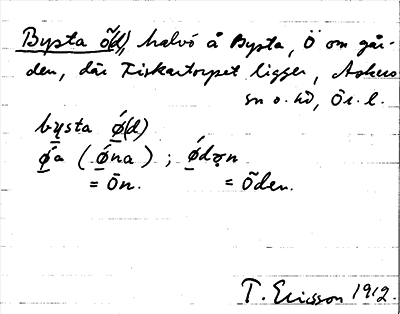 Bysta ö(d), halvö å Bysta, Ö om går-
den, där Fiskartorpet ligger, Askers
sn o. hd, Ör. l.
bysta ǿ(d)
ǿa (ǿna); ǿdǫn
= Ön. = Öden.
T. Ericsson 1912.